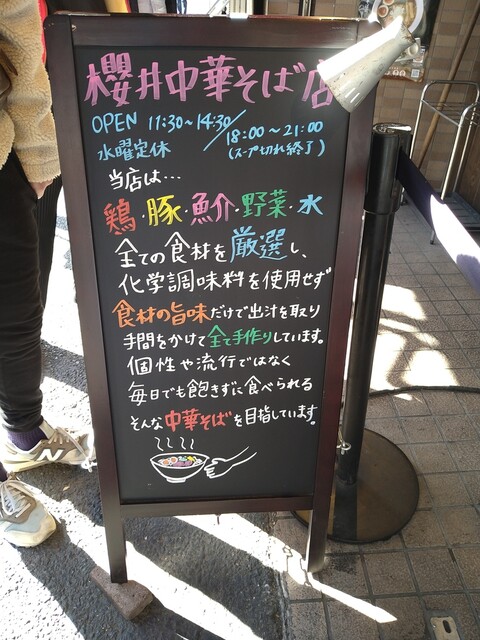 櫻井中華そば店
OPEN 11:30~14:30/18:00~21:00
水曜定休 (スープ切れ終了)
当店は…
鶏・豚・魚介・野菜・水
全ての食材を厳選し、
化学調味料を使用せず
食材の旨味だけで出汁を取り
手間をかけて全て手作りしています。
個性や流行ではなく
毎日でも飽きずに食べられる
そんな中華そばを目指しています。
N